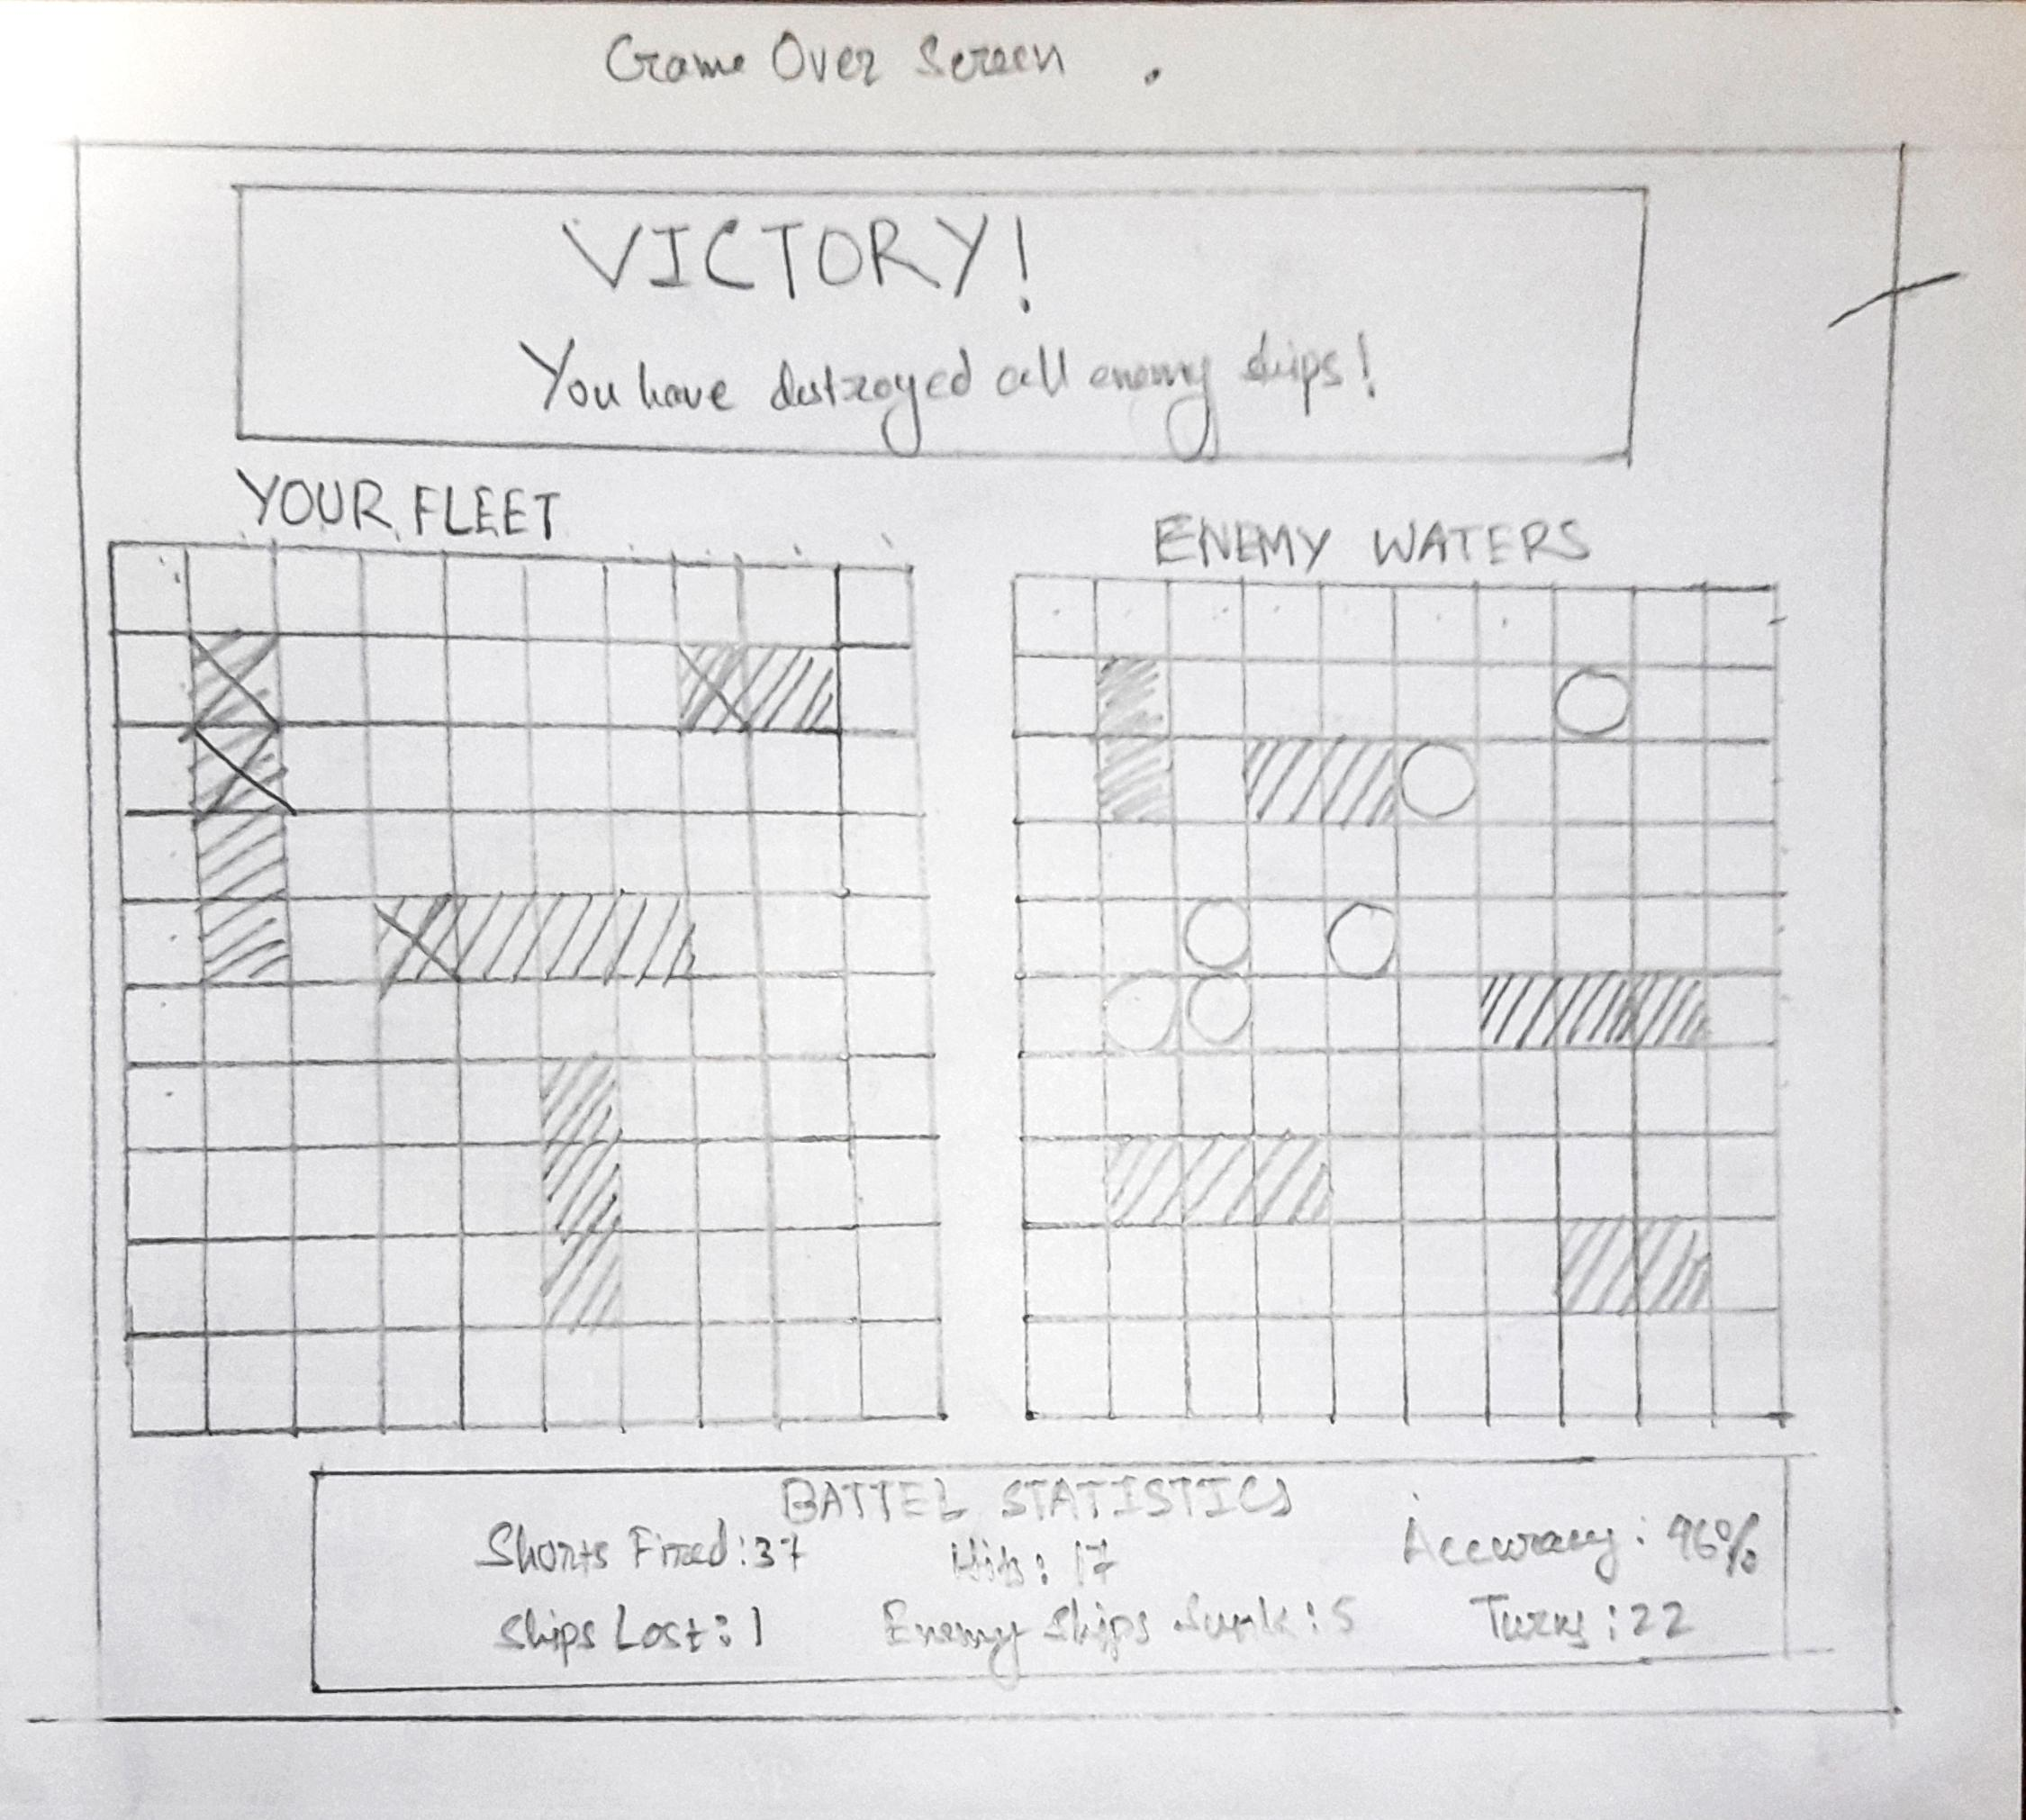 Game Over Screen .
VICTORY!
You have destroyed all enemy ships!
YOUR FLEET
ENEMY WATERS
BATTEL STATISTICS
Shorts Fired:37 Hits: 17 Accuracy: 96%
Ships Lost: 1 Enemy Ships Sunk: 5 Turns: 22